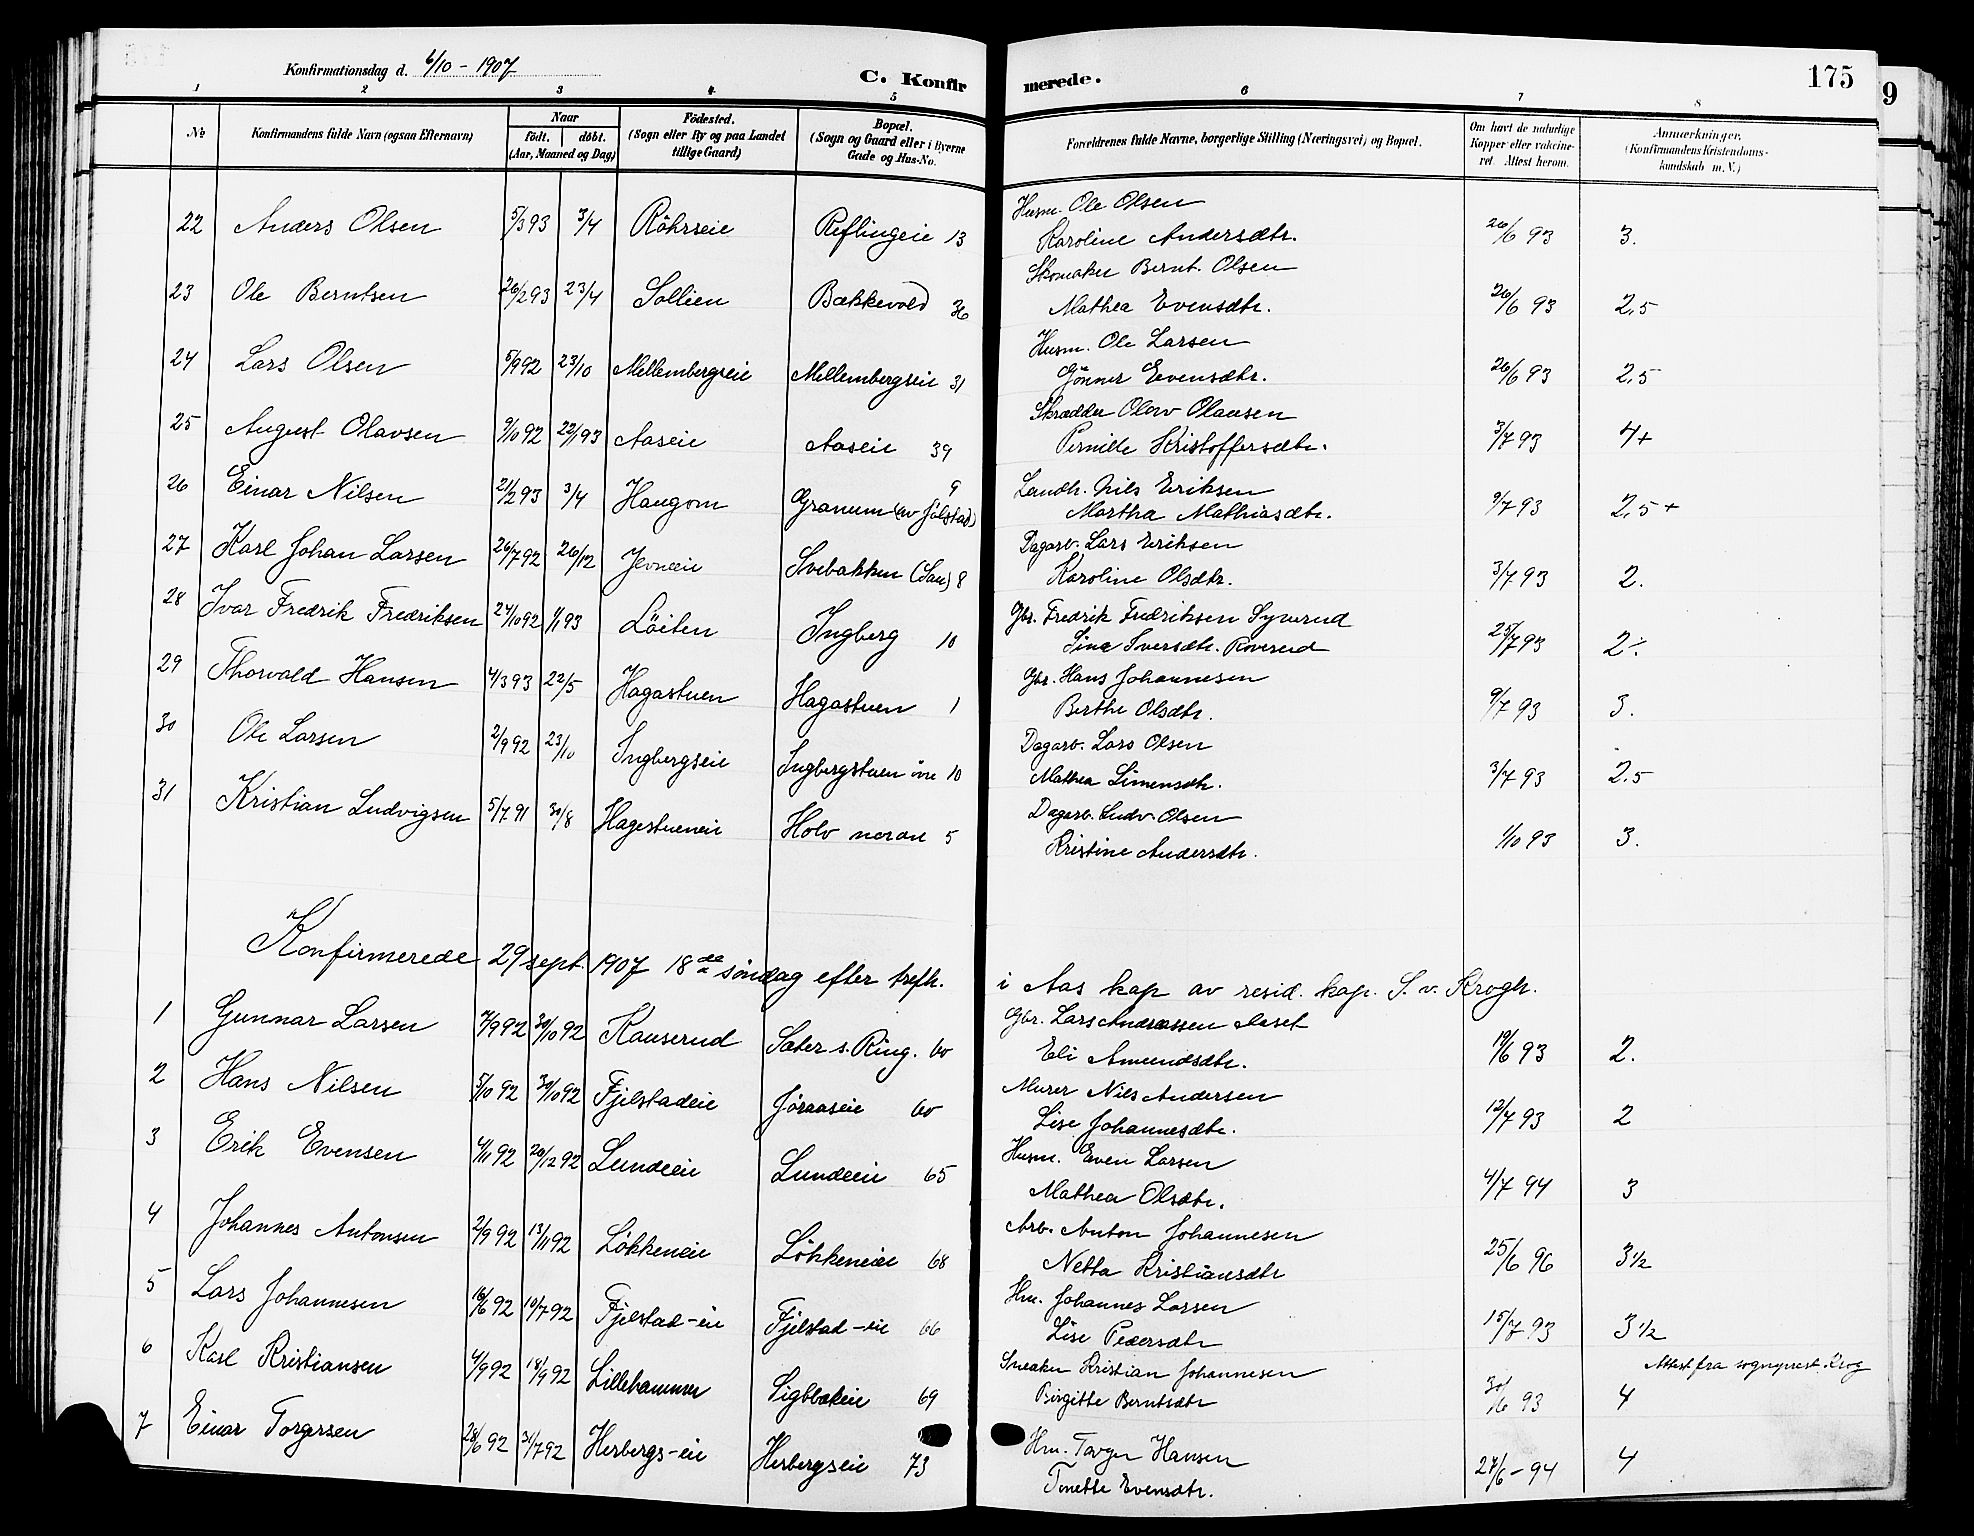 Konfirmationsdag d. 6/10 - 1907
C. Konfirmerede.
175
9
1 2 3 4 5 6 7 8
No
Konfirmandens fulde Navn (ogsaa Efternavn)
Naar
født. døbt.
(Aar, Maaned og Dag)
Födested.
(Sogn eller By og paa Landet
tillige Gaard)
Bopæl.
(Sogn og Gaard eller i Byerne
Gade og Hus-No.
Forældrenes fulde Navne, borgerlige Stilling (Næringsvei) og Bopæl.
Om havt de naturlige
Kopper eller vakcine-
ret. Attest herom.
Anmærkninger.
(Konfirmandens Kristendoms-
kundskab m. V.)
22 Anders Olsen 5/3 93 3/4 Röhrseie Reflingeie 13 Husm. Ole Olsen
Karoline Andersdtr. 26/6 93 3.
23 Ole Berntsen 26/2 93 23/4 Sollien Bækkevold 36 Skomaker Bernt Olsen
Mathea Evensdtr. 26/6 93 2,5
24 Lars Olsen 5/9 92 23/10 Mellembergseie Mellembergseie 31 Husm. Ole Larsen
Gönner Evensdtr. 26/6 93 2,5
25 August Olavsen 9/10 92 22/1 93 Aaseie Aaseie 39 Skrædder Olav Olausen
Pernille Kristoffersdtr. 3/7 93 4+
26 Einar Nilsen 21/2 93 3/4 Haugom Granum (av Jölstad) 9 Landh. Nils Eriksen
Martha Mathiasdtr. 9/7 93 2,5+
27 Karl Johan Larsen 26/7 92 26/12 Jevneeie Svebakken (Sau) 8 Dagarb. Lars Eriksen
Karoline Olsdtr. 3/7 93 2.
28 Ivar Fredrik Fredriksen 24/10 92 1/1 93 Löiten Ingberg 10 Gbr. Fredrik Fredriksen Syverud
Sina Iversdtr. Roverud 25/7 93 2÷
29 Thorvald Hansen 4/3 93 22/5 Hagastuen Hagastuen 1 Gbr. Hans Johannesen
Berthe Olsdtr. 9/7 93 3.
30 Ole Larsen 2/9 92 23/10 Ingbergseie Ingbergstuen övre 10 Dagarb. Lars Olsen
Mathea Simensdtr. 3/7 93 2.5
31 Kristian Ludvigsen 5/7 91 30/8 Hagestueneie Holv neran 5 Dagarb. Ludv. Olsen
Kristine Andersdtr. 1/10 93 3.
Konfirmerede 29 sept. 1907 18de søndag efter trefh. i Aas kap av resid. kap. S. v. Krogh.
1 Gunnar Larsen 7/9 92 30/10 92 Kauserud Sæter s. Ring. 60 Gbr. Lars Andreassen Aaset
Eli Amundsdtr. 19/6 93 2.
2 Hans Nilsen 5/10 92 30/10 92 Fjelstadeie Jøraaseie 60 Murer Nils Andersen
Lise Johannesdtr. 12/7 93 2
3 Erik Evensen 4/11 92 26/12 92 Lundeeie Lundeeie 65 Husm. Even Larsen
Mathea Olsdtr. 4/7 94 3
4 Johannes Antonsen 2/9 92 13/11 92 Lökkeneie Lökkeneie 68 Arb. Anton Johannesen
Netta Kristiansdtr 25/6 96 3 1/2
5 Lars Johannesen 16/6 92 10/7 92 Fjelstad-eie Fjelstad-eie 66 Hm. Johannes Larsen
Lise Pedersdtr 15/7 93 3 1/2
6 Karl Kristiansen 4/9 92 18/9 92 Lillehammer Sigbbakeie 69 Snekker Kristian Johannesen
Birgitte Berntsdtr 30/6 93 4 Attest fra sogneprest Krog
7 Einar Torgersen 28/6 92 31/7 92 Herbergs-eie Herbergseie 73 Hm. Torger Hansen
Tonette Evensdtr. 27/6 - 94 4